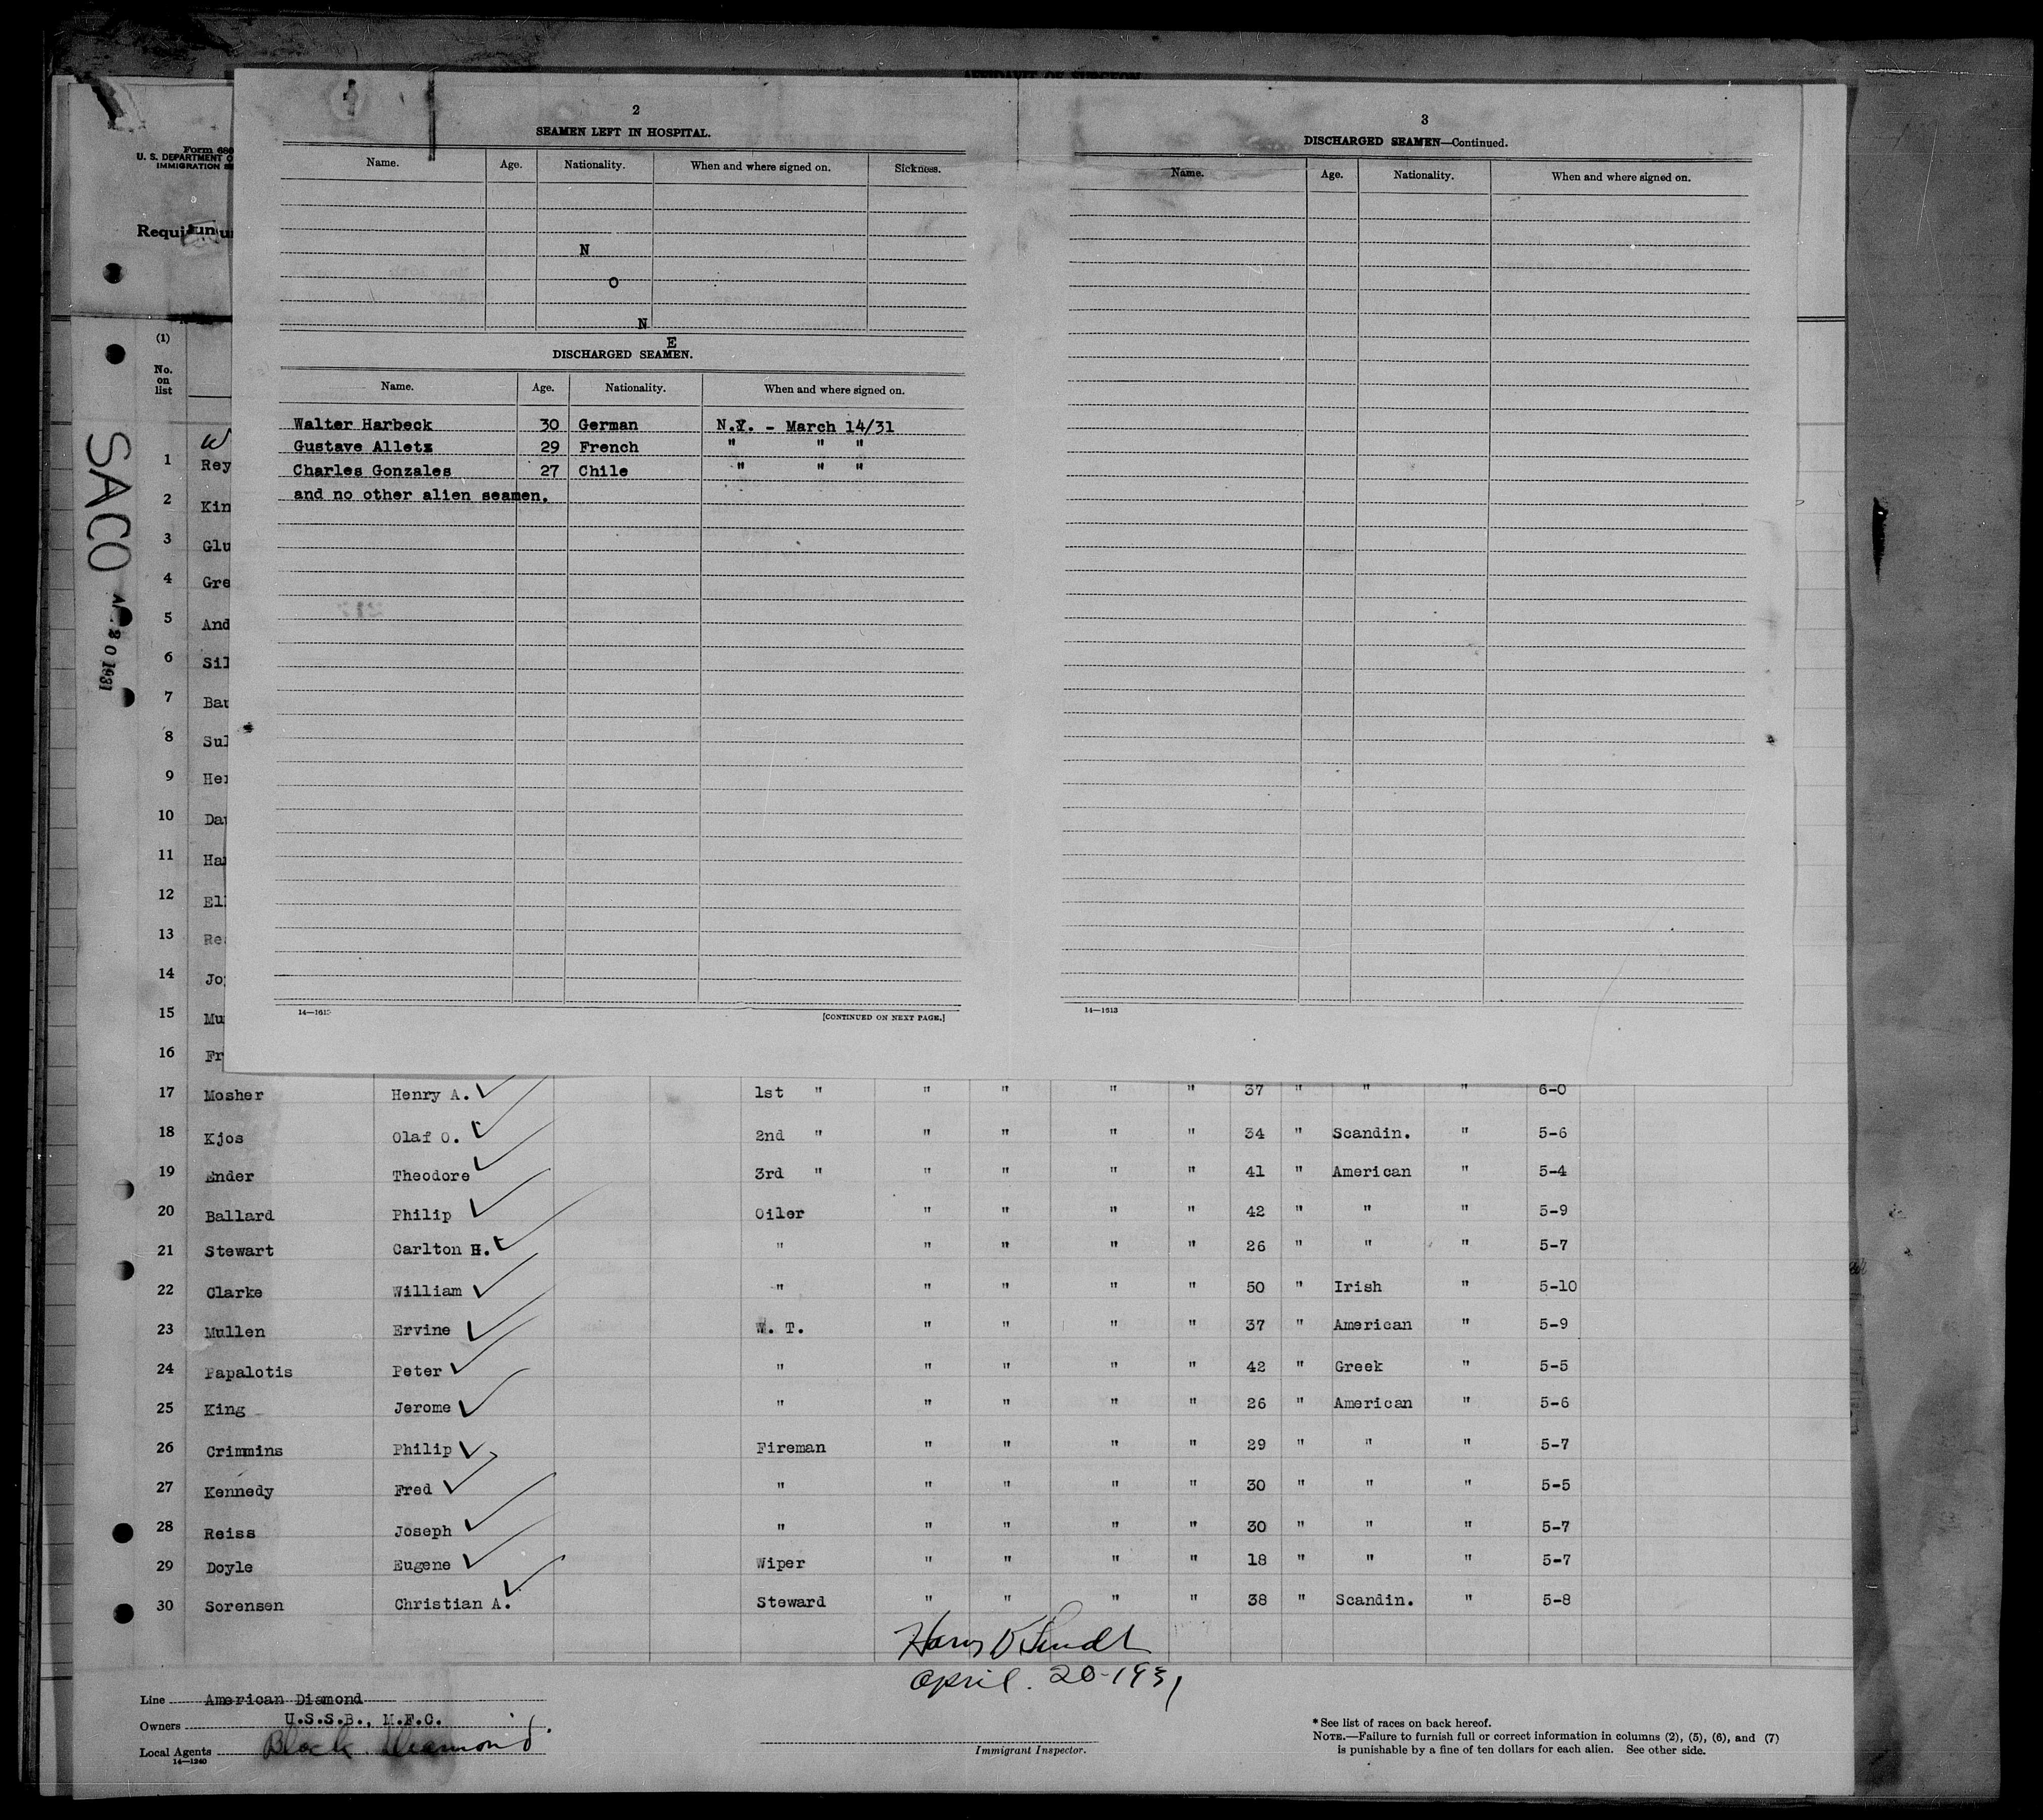 AFFIDAVIT OF SURGEON
Form 680
U. S. DEPARTMENT O
IMMIGRATION SE
Requi
(1)
No.
on
list
SACO
20 1931
2
SEAMEN LEFT IN HOSPITAL.
Name. Age. Nationality. When and where signed on. Sickness.
N
O
N
E
DISCHARGED SEAMEN.
Name. Age. Nationality. When and where signed on.
Walter Harbeck 30 German N.Y. - March 14/31
Gustave Alletz 29 French " " "
Charles Gonzales 27 Chile " " "
and no other alien seamen.
14—1613
[CONTINUED ON NEXT PAGE.]
3
DISCHARGED SEAMEN—Continued.
Name. Age. Nationality. When and where signed on.
14—1613
W
1 Rey
2 Kin
3 Glu
4 Gre
5 And
6 Sil
7 Bau
8 Sul
9 Her
10 Dav
11 Har
12 Ell
13 Rea
14 Jo
15 Mu
16 Fr
17 Mosher Henry A. 1st " " " " " 37 " " " 6-0
18 Kjos Olaf O. 2nd " " " " " 34 " Scandin. " 5-6
19 Ender Theodore 3rd " " " " " 41 " American " 5-4
20 Ballard Philip Oiler " " " " 42 " " " 5-9
21 Stewart Carlton H. " " " " " 26 " " " 5-7
22 Clarke William " " " " " 50 " Irish " 5-10
23 Mullen Ervine W. T. " " " " 37 " American " 5-9
24 Papalotis Peter " " " " " 42 " Greek " 5-5
25 King Jerome " " " " " 26 " American " 5-6
26 Crimmins Philip Fireman " " " " 29 " " " 5-7
27 Kennedy Fred " " " " " 30 " " " 5-5
28 Reiss Joseph " " " " " 30 " " " 5-7
29 Doyle Eugene Wiper " " " " 18 " " " 5-7
30 Sorensen Christian A. Steward " " " " 38 " Scandin. " 5-8
Harry
April. 20-1931
Line American Diamond
Owners U.S.S.B., M.F.C.
Local Agents Black Diamond
14—1240
Immigrant Inspector.
* See list of races on back hereof.
NOTE.—Failure to furnish full or correct information in columns (2), (5), (6), and (7)
is punishable by a fine of ten dollars for each alien. See other side.